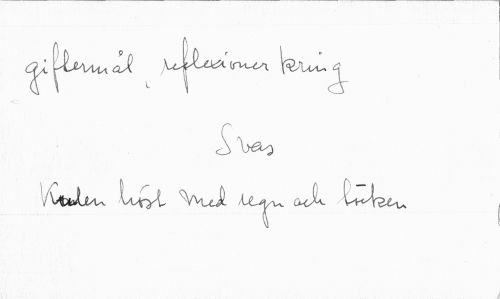 giftermål, reflexioner kring
Svas
Kulen höst med regn och töcken